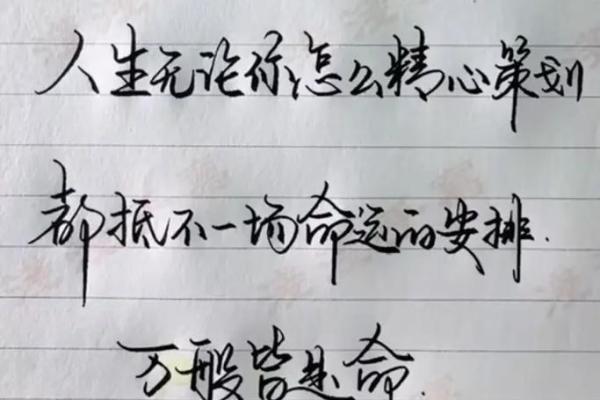 人生无论你怎么精心策划
都抵不一场命运的安排.
万般皆是命.